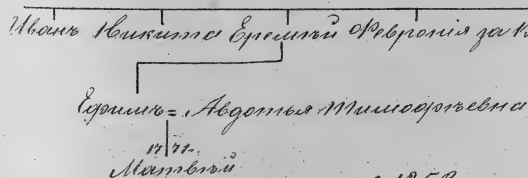 Иванъ Никита Еремѣй Феврония за
Ефимъ = Авдотья Тимофѣевна
1771.
Матвѣй